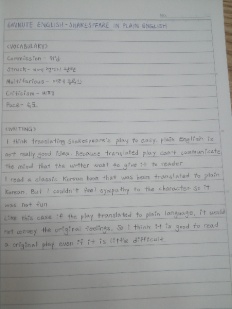 6 MINUTE ENGLISH - SHAKESPEARE IN PLAIN ENGLISH
VOCABULARY
Commission -
Multifarious -
Criticism -
WRITING
I think translating Shakespeare's play to easy, plain english is
not really good idea. Because translated play can't communicate
the mind that the writer want to give to reader.
I read a classic Korean book that was been translated to plain
Korean But I couldn't feel sympathy to the character so it
was not fun
Like this case if the play translated to plain language, it would
not convey the original feelings. So I think it is good to read
a original play even if it is little difficult